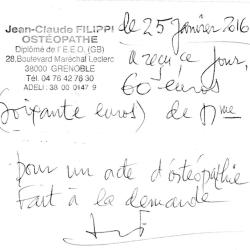 Jean-Claude FILIPPI
OSTÉOPATHE
Diplômé de l'E.E.O. (GB)
28, Boulevard Maréchal Leclerc
38000 GRENOBLE
Tél. 04 76 42 76 30
ADELI : 38 00 0147 9
Le 25 Janvier 2016
a reçu ce jour,
60 euros
(soixante euros) de Mme
pour un acte d'ostéopathie
Fait à la demande